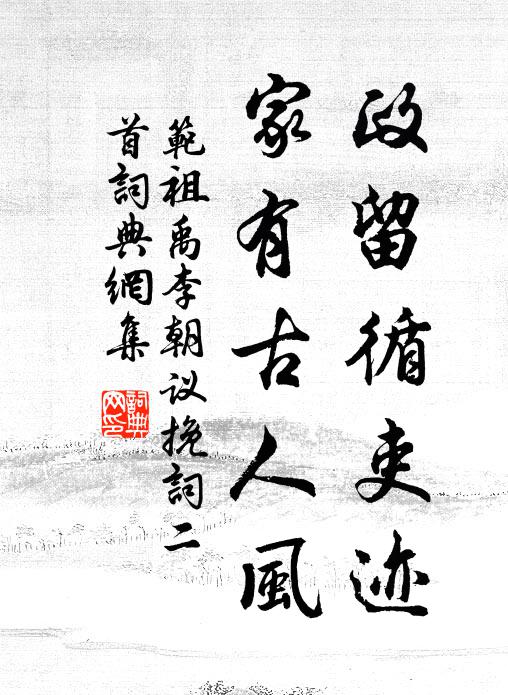 政留循吏迹
家有古人風
範祖禹李朝议挽詞二
首詞典網集
詞典网印